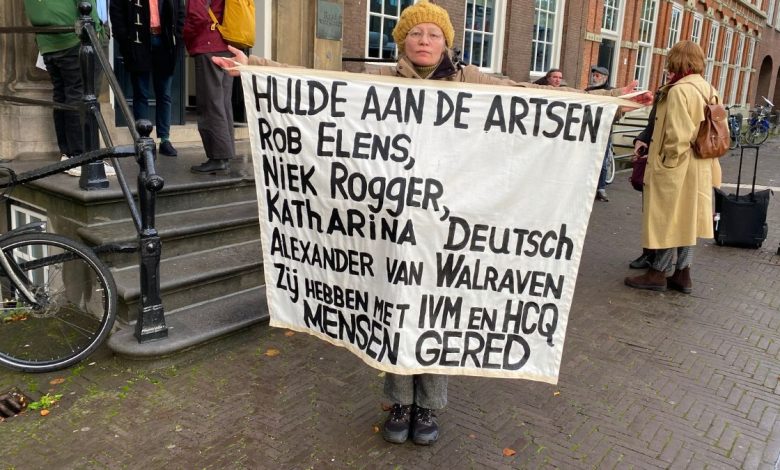 HULDE AAN DE ARTSEN
ROB ELENS,
NIEK ROGGER,
KATHARINA DEUTSCH
ALEXANDER VAN WALRAVEN
ZIJ HEBBEN MET IVM EN HCQ
MENSEN GERED